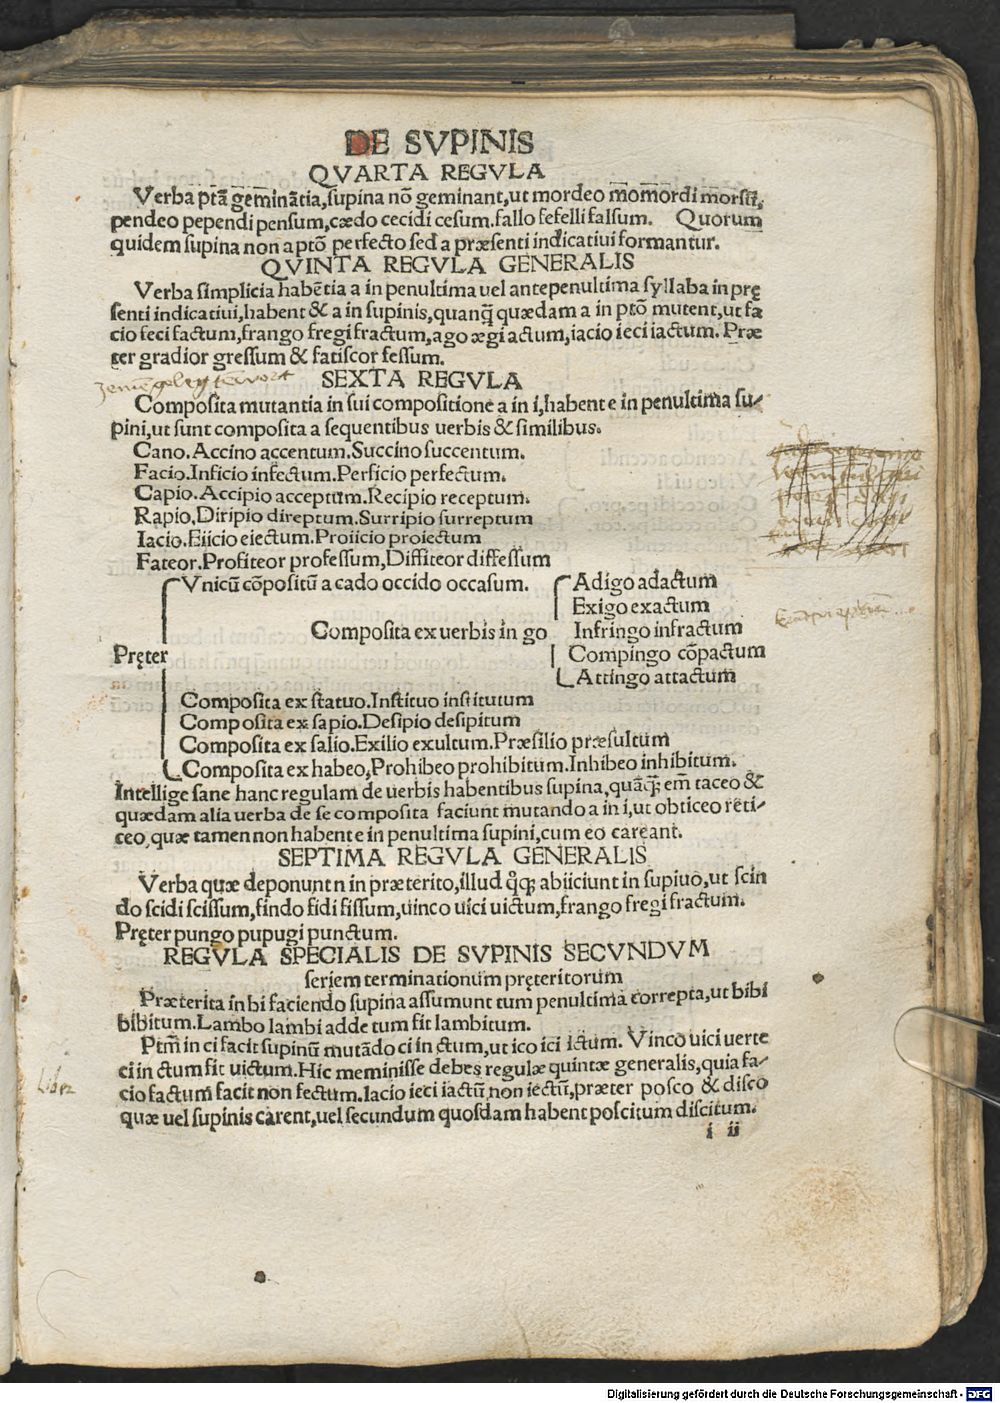 DE SVPINIS
QVARTA REGVLA
Verba ptā gemināntia,supina nō geminant,ut mordeo momordi morsū,
pendeo pependi pensum,cædo cecidi cesum.fallo fefelli falsum. Quorum
quidem supina non a ptō perfecto sed a præsenti indicatiui formantur.
QVINTA REGVLA GENERALIS
Verba simplicia habētia a in penultima uel antepenultima syllaba in prę
senti indicatiui,habent & a in supinis,quanq̄ quædam a in ptō mutent,ut fa
cio feci factum,frango fregi fractum,ago ægi actum,iacio ieci iactum. Præ
ter gradior gressum & fatiscor fessum.
SEXTA REGVLA
Composita mutantia in sui compositione a in i,habent e in penultima su/
pini,ut sunt composita a sequentibus uerbis & similibus.
Cano.Accino accentum.Succino succentum.
Facio.Inficio infectum.Perficio perfectum.
Capio.Accipio acceptum.Recipio receptum.
Rapio.Diripio direptum.Surripio surreptum
Iacio.Eiicio eiectum.Proiicio proiectum
Fateor.Profiteor professum,Diffiteor diffessum
Vnicū cōpositū a cado occido occasum.
Adigo adactum
Exigo exactum
Composita ex uerbis in go Infringo infractum
Pręter
Compingo cōpactum
Attingo attactum
Composita ex statuo.Instituo institutum
Composita ex sapio.Desipio desipitum
Composita ex salio.Exilio exultum.Præsilio præsultum
Composita ex habeo,Prohibeo prohibitum.Inhibeo inhibitum.
Intellige sane hanc regulam de uerbis habentibus supina,quāq̄ em̄ taceo &
quædam alia uerba de se composita faciunt mutando a in i,ut obticeo reti/
ceo,quæ tamen non habent e in penultima supini,cum eo careant.
SEPTIMA REGVLA GENERALIS
Verba quæ deponunt n in præterito,illud q̊q; abiiciunt in supiuo,ut scin
do scidi scissum,findo fidi fissum,uinco uici uictum,frango fregi fractum.
Pręter pungo pupugi punctum.
REGVLA SPECIALIS DE SVPINIS SECVNDVM
seriem terminationum pręteritorum
Præterita in bi faciendo supina assumunt tum penultima correpta,ut bibi
bibitum.Lambo lambi adde tum fit lambitum.
Ptm̄ in ci facit supinū mutādo ci in ctum,ut ico ici ictum. Vinco uici uerte
ci in ctum fit uictum.Hic meminisse debes regulæ quintæ generalis,quia fa/
cio factum facit non fectum.Iacio ieci iactū,non iectū,præter posco & disco
quæ uel supinis carent,uel secundum quosdam habent poscitum discitum.
i ii
Digitalisierung gefördert durch die Deutsche Forschungsgemeinschaft - DFG